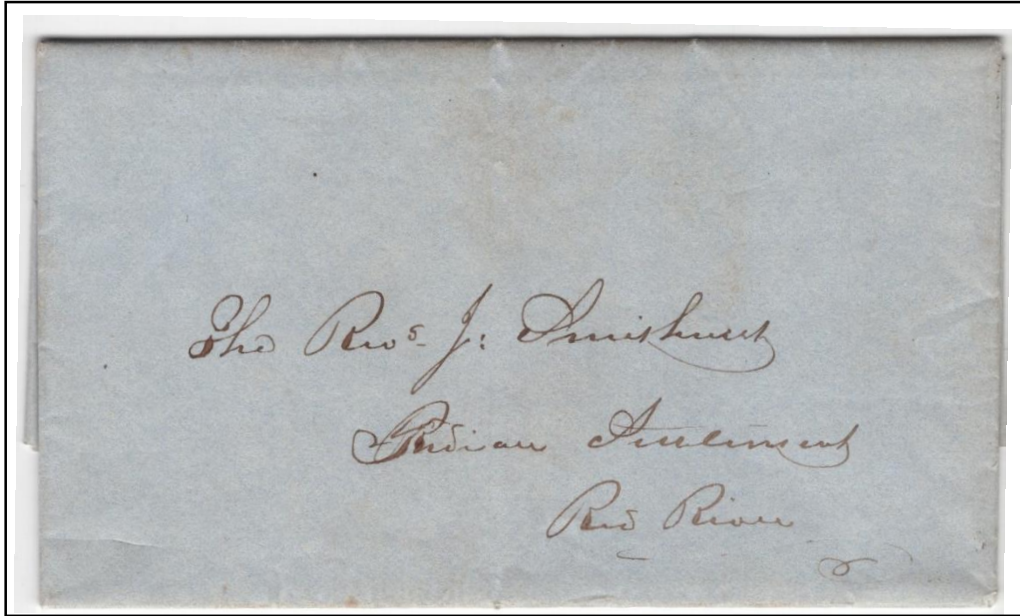 The Revd J: Smithurst
Indian Settlement
Red River